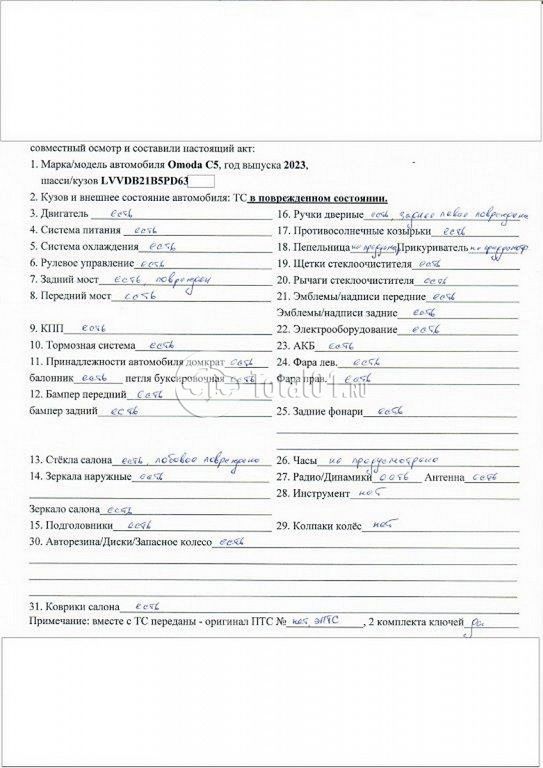 совместный осмотр и составили настоящий акт:
1. Марка/модель автомобиля Omoda C5, год выпуска 2023,
шасси/кузов LVVDB21B5PD63
2. Кузов и внешнее состояние автомобиля: ТС в поврежденном состоянии.
3. Двигатель есть
4. Система питания есть
5. Система охлаждения есть
6. Рулевое управление есть
7. Задний мост есть, поврежден
8. Передний мост есть
9. КПП есть
10. Тормозная система есть
11. Принадлежности автомобиля домкрат есть
балонник есть петля буксировочная есть
12. Бампер передний есть
бампер задний есть
13. Стёкла салона есть, лобовое повреждено
14. Зеркала наружные есть
Зеркало салона есть
15. Подголовники есть
16. Ручки дверные есть, заднее левое повреждена
17. Противосолнечные козырьки есть
18. Пепельница не предусм Прикуриватель не предусмотр
19. Щетки стеклоочистителя есть
20. Рычаги стеклоочистителя есть
21. Эмблемы/надписи передние есть
Эмблемы/надписи задние есть
22. Электрооборудование есть
23. АКБ есть
24. Фара лев. есть
Фара прав. есть
25. Задние фонари есть
26. Часы не предусмотрено
27. Радио/Динамики есть Антенна есть
28. Инструмент нет
29. Колпаки колёс нет
30. Авторезина/Диски/Запасное колесо есть
31. Коврики салона есть
Примечание: вместе с ТС переданы - оригинал ПТС № нет, ЭПТС, 2 комплекта ключей да
Total01.RU